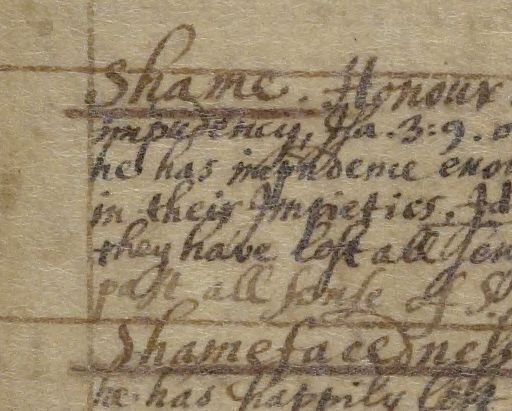 Shame. Honour
impudency, Isa. 3:9.
he has impudence enou
in their Impieties. Id
they have lost all sen
past all sense of S
Shamefacedness
he has happily lost